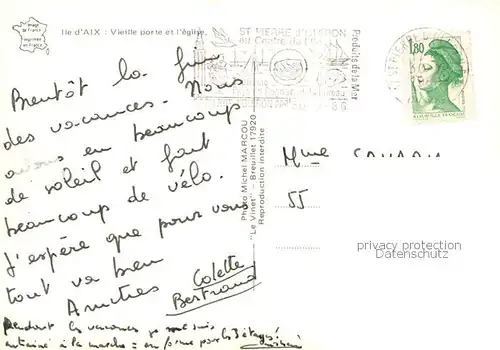 Image de France
Imprimée en France
Ile d'AIX : Vieille porte et l'église.
ST PIERRE D'OLERON
au Centre de l'Ile
Produits de la Mer
1,80
Bientôt la fin
des vacances. Nous
avons eu beaucoup
de soleil et fait
beaucoup de vélo.
J'espère que pour vous
tout va bien
Amitiés
Colette
Bertrand
Pendant les vacances je me suis
entrainé à la marche = en forme pour les 3 étages!
Photo Michel MARCOU
"Le Vinet" - Breuillet 17920
Reproduction interdite
Mme
55
privacy protection
Datenschutz